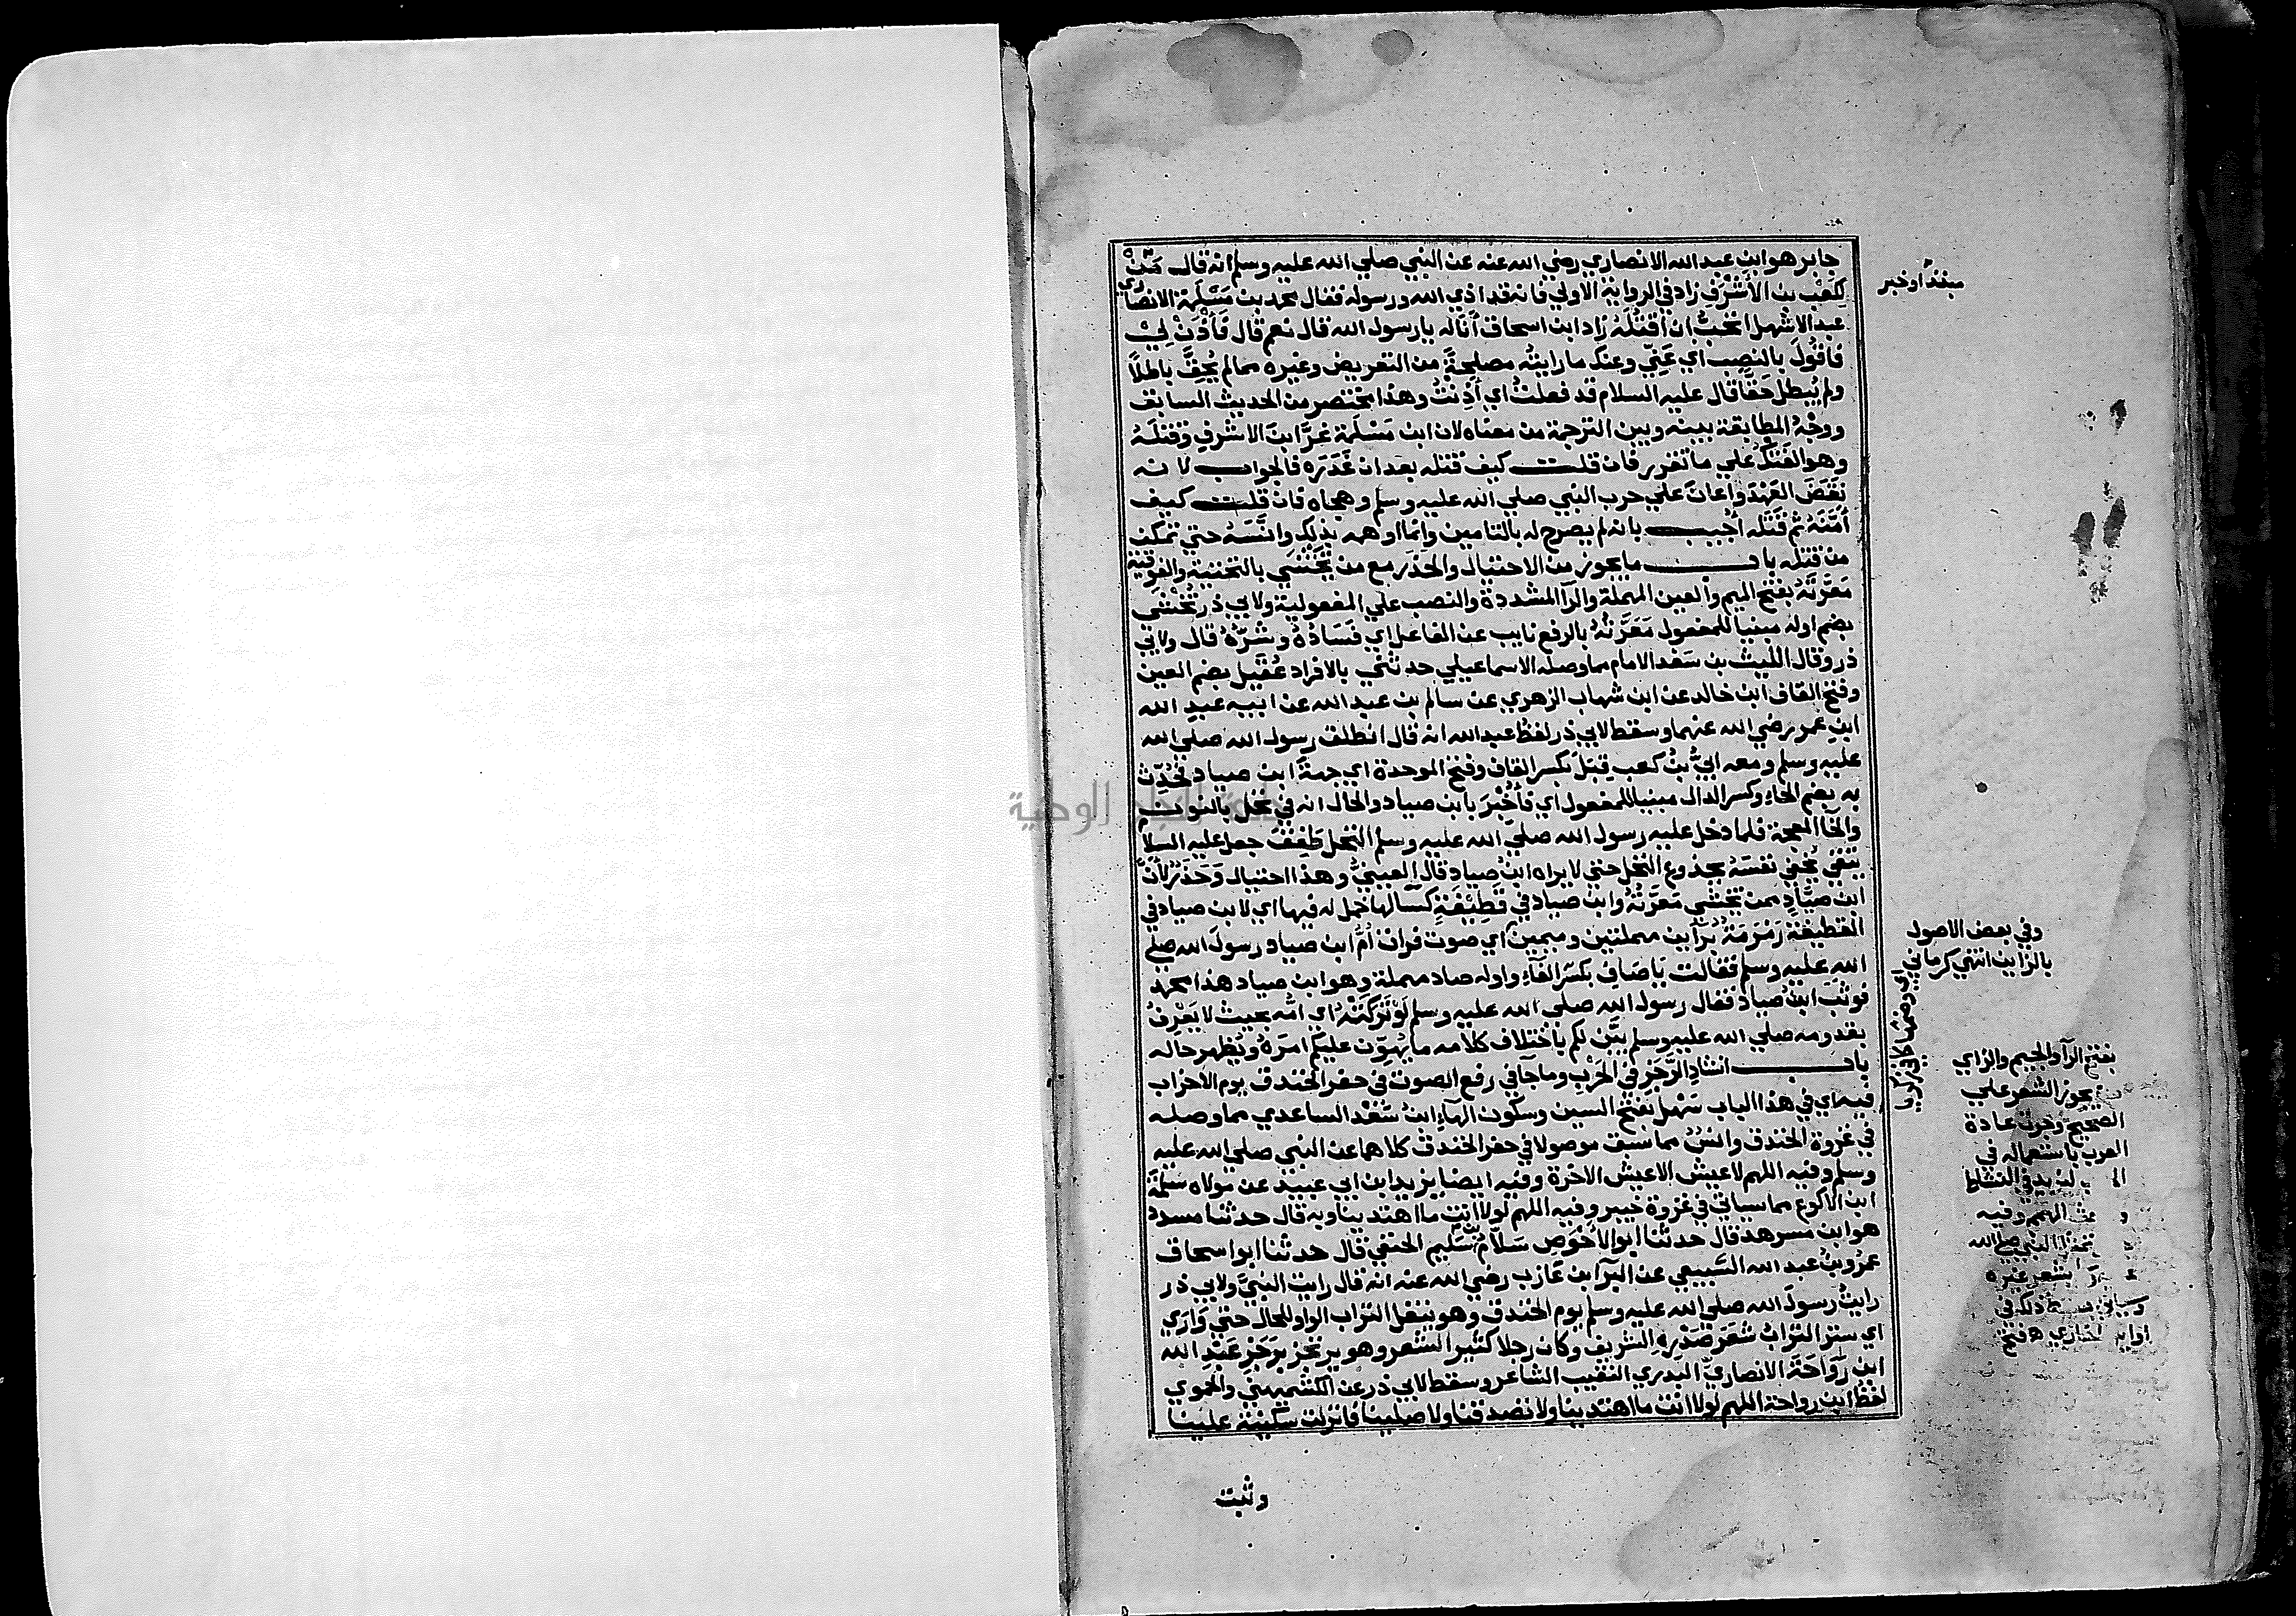 جابر هو ابن عبد الله الانصاري رضي الله عنه عن النبي صلي الله عليه وسلم انه قال مَنْ
لِكَعْب بن الاَشْرَفِ زاد في الرواية الاولي فانه قد اذي الله ورسوله فقال محمد بن مَسْلَمة الانصاري
عبد الاشهل اتحبُّ ان اَقتُلَهُ زاد ابن اسحاق اَنَا له يا رسول الله قال نعم قال فَأْذَنْ لِيْ
فاقولَ بالنصب اي عَنِّي وعنك ما رايتُه مصلحةً من التعريض وغيره مما لم يُحِقَّ باطلاً
ولم يُبطل حَقا قال عليه السلام قد فعلتُ اي اَذِنتُ وهذا مختصر من الحديث السابق
ووَجْهُ المطابقة بينه وبين الترجمة من معناه لان ابن مَسْلَمة غَرَّ ابنَ الاشرفِ وقتلَهُ
وهو الفَتْكُ علي ما تقرر فان قلت كيف قتله بعد ان غَدَرَه فالجواب لانه
نَقَضَ العَهْدَ واعانَ علي حرب النبي صلي الله عليه وسلم وهجاه فان قلت كيف
اَمَّنَهُ ثم قَتله اُجيب بانه لم يصرح له بالتامين وانما اوهمه بذلك وانَّسَهُ حتي تمكن
من قتله باب ما يجوز من الاحتيال والحَذَر مع من يَخْتَشي بالتحتية والفوقية
مَعَرَّتَهُ بفتح الميم والعين المهملة والرآ المشددة والنصب علي المفعولية ولابي ذر تُخْشي
بضم اوله مبنيا للمفعول مَعَرَّتُهُ بالرفع نايب عن الفاعل اي فَسَادُهُ وشرُّهُ قال ولابي
ذر وقال الليث بن سَعْد الامام مما وصله الاسماعيلي حدثني بالافراد عُقَيل بضم العين
وفتح القاف ابن خالد عن ابن شهاب الزهري عن سالم بن عبد الله عن ابيه عبدِ الله
ابنِ عمر رضي الله عنهما وسقط لابي ذر لفظُ عبد الله انه قال انطلق رسول الله صلي الله
عليه وسلم ومعه ابيُّ بنُ كعب قِبَلَ بكسر القاف وفتح الموحدة اي جهةَ ابن صياد فحُدِّث
به بضم الحاء وكسر الدال مبنيا للمفعول اي فأُخْبِرَ بابن صياد والحال انه في نخل بالنون
والخا المعجمة فلما دخل عليه رسول الله صلي الله عليه وسلم النخل طَفِقَ جعل عليه السلام
يتقي يُخفي نفسَهُ بجذوع النخل حتي لا يراه ابنُ صياد قال العينيُّ وهذا احتيال وحَذَرٌ لانَّ
ابن صيَّادٍ ممن يختشي مَعَرَّتُهُ وابن صياد في قَطِيْفَةٍ كسآ لها خمل له فيها اي لابن صياد في
القطيفة رَمْرَمَةٌ برآين مهملتين وميمين اي صوت فرات اُمُّ ابن صياد رسولَ الله صلي
الله عليه وسلم فقالت يَا صَافِ بكسر الفآء واوله صاد مهملة وهو ابن صياد هذا محمد
فوثب ابنُ صياد فقال رسول الله صلي الله عليه وسلم لَوْ تَرَكَتْهُ اي امُّه بحيث لا يَعْرِفُ
بقدومه صلي الله عليه وسلم بَيَّنَ لكم باختلاف كلامه ما يُهوِّن عليكم امرَهُ ويُظهر حاله
باب انشادِ الرَّجَزِ في الحَرْبِ وما جآ في رفع الصوت في حفر الخندق يوم الاحزاب
فيه اي في هذا الباب سَهْل بفتح السين وسكون الهاءِ ابنُ سَعْد الساعدي مما وصله
في غزوة الخندق وانسٌ مما سبق موصولا في حفر الخندق كلاهما عن النبي صلي الله عليه
وسلم وفيه اللهم لا عيش الا عيش الاخرة وفيه ايضا يزيد ابن ابي عبيد عن مولاه سَلَمة
ابن الاكوع مما سياتي في غزوة خيبر وفيه اللهم لولا انت ما اهتدينا وبه قال حدثنا مسدد
هو ابن مسرهد قال حدثنا ابو الاَحْوَصِ سَلاَّمُ بن سُلَيم الحنفي قال حدثنا ابو اسحاق
عمرُو بنُ عبد الله السَّبيعي عن البرآ ابن عَازب رضي الله عنه انه قال رايت النبيَّ ولابي ذر
رايتُ رسولَ الله صلي الله عليه وسلم يوم الخندق وهو ينقل التراب الواو للحال حتي وَارَي
اي ستر الترابُ شَعَرَ صَدْرِهِ الشريف وكان رجلا كثير الشعر وهو يرتجز برَجَزِ عَبْدِ الله
ابن رَوَاحَةَ الانصاريّ البدري النقيب الشاعر وسقط لابي ذر عن الكشميهني والحموي
لفظُ ابن رواحة اللهم لولا انت ما اهتدينا ولا تصدقنا ولا صلينا فانزلن سكينة علينا
وثبت
مبتدأ وخبر
وفي بعض الاصول
بالزاين انتهي كرماني
بفتح الرآ والجيم والزاي
يجوز الشعر علي
الصحيح وجرت عادة
العرب باستعماله في
ليزيد في النشاط
الهمم وفيه
النبي صلي الله
بشعر غيره
ذلك في